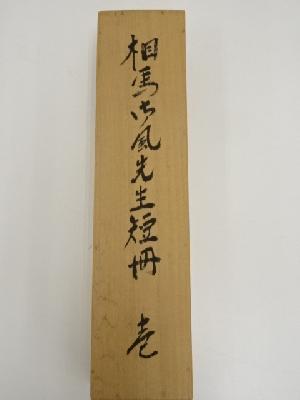 相馬御風先生短冊 壱